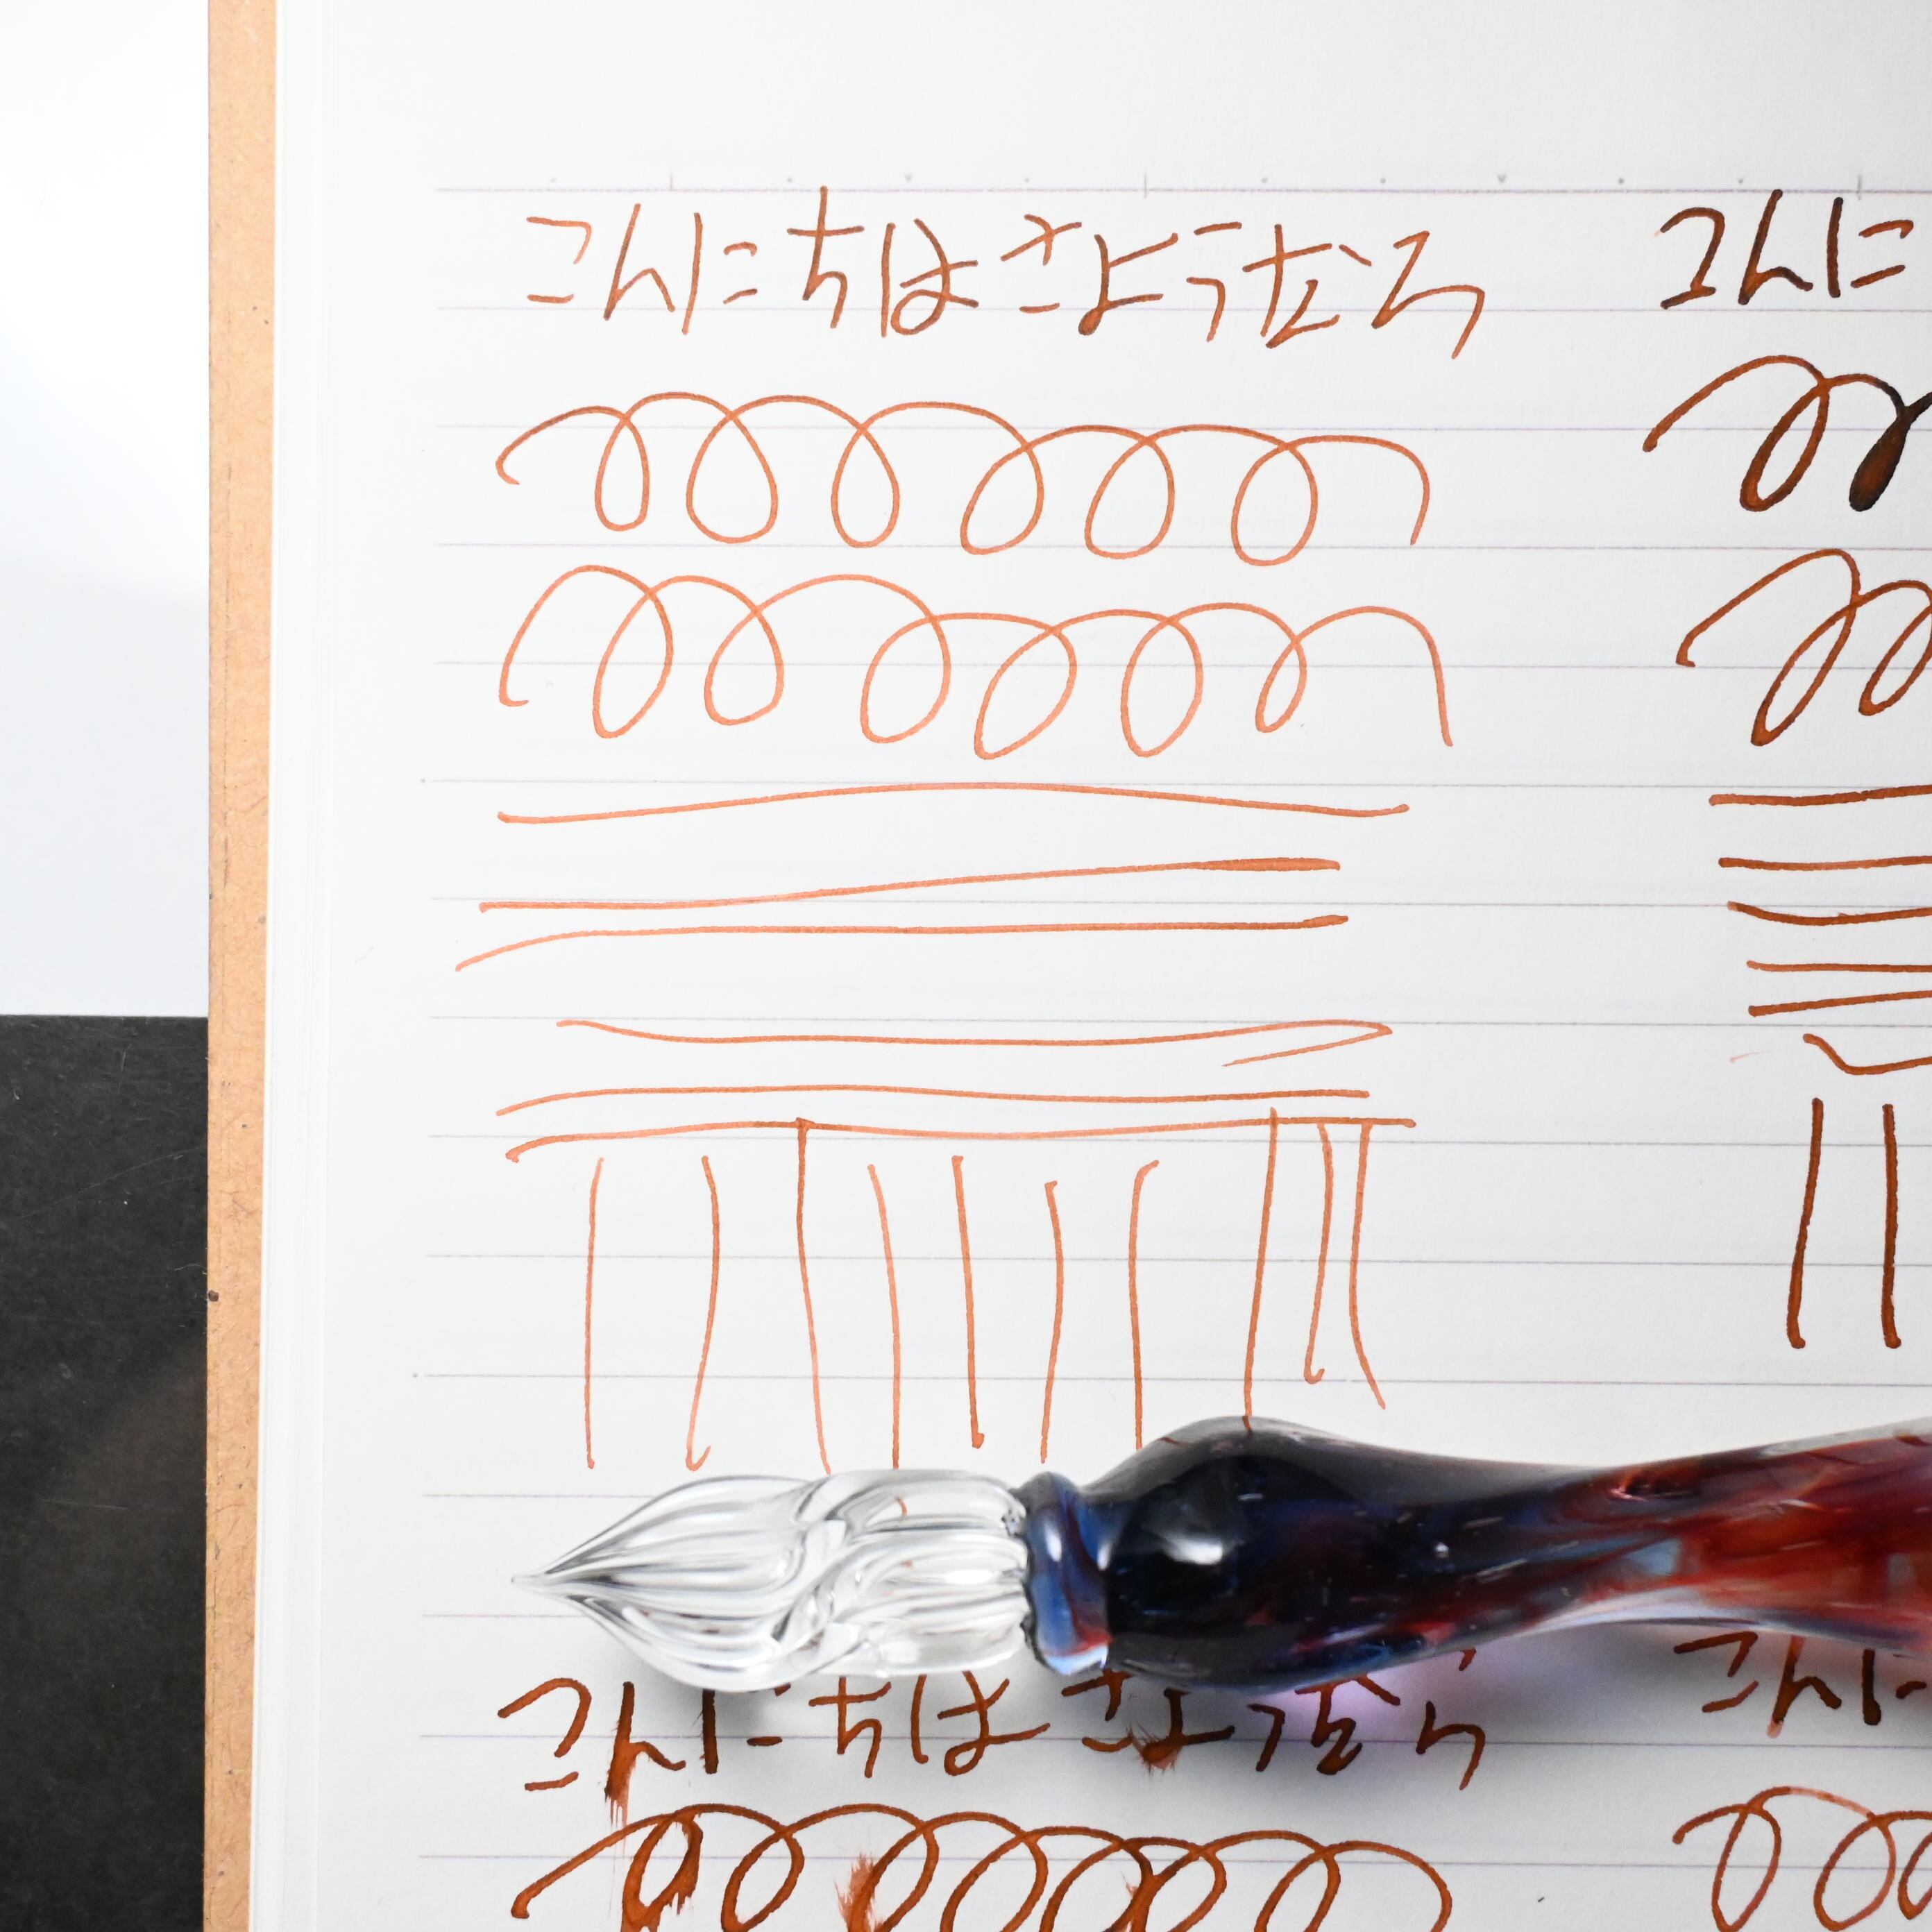 こんにちは さようなら
こんに
こんにちは さようなら
こんに